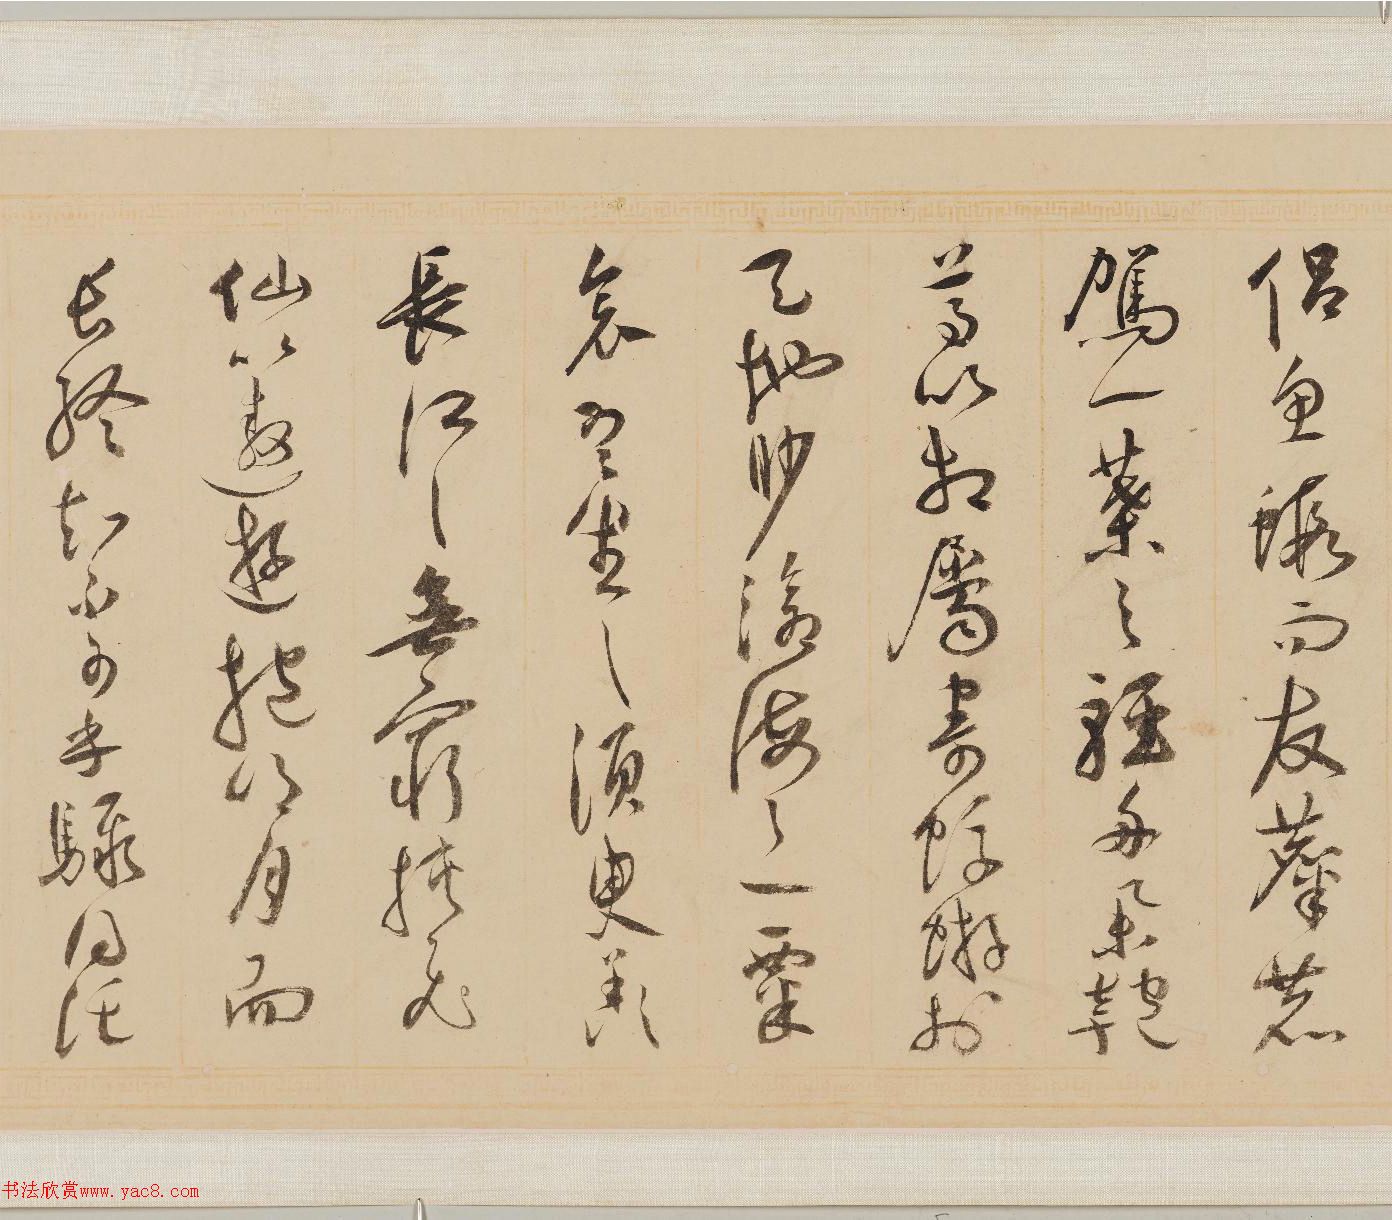 侶魚蝦而友麋鹿
駕一葉之輕舟舉匏
尊以相屬寄蜉蝣於
天地眇滄海之一粟
哀吾生之須臾羨
長江之無窮挾飛
仙以遨遊抱明月而
長終知不可乎驟得託
书法欣赏www.yac8.com